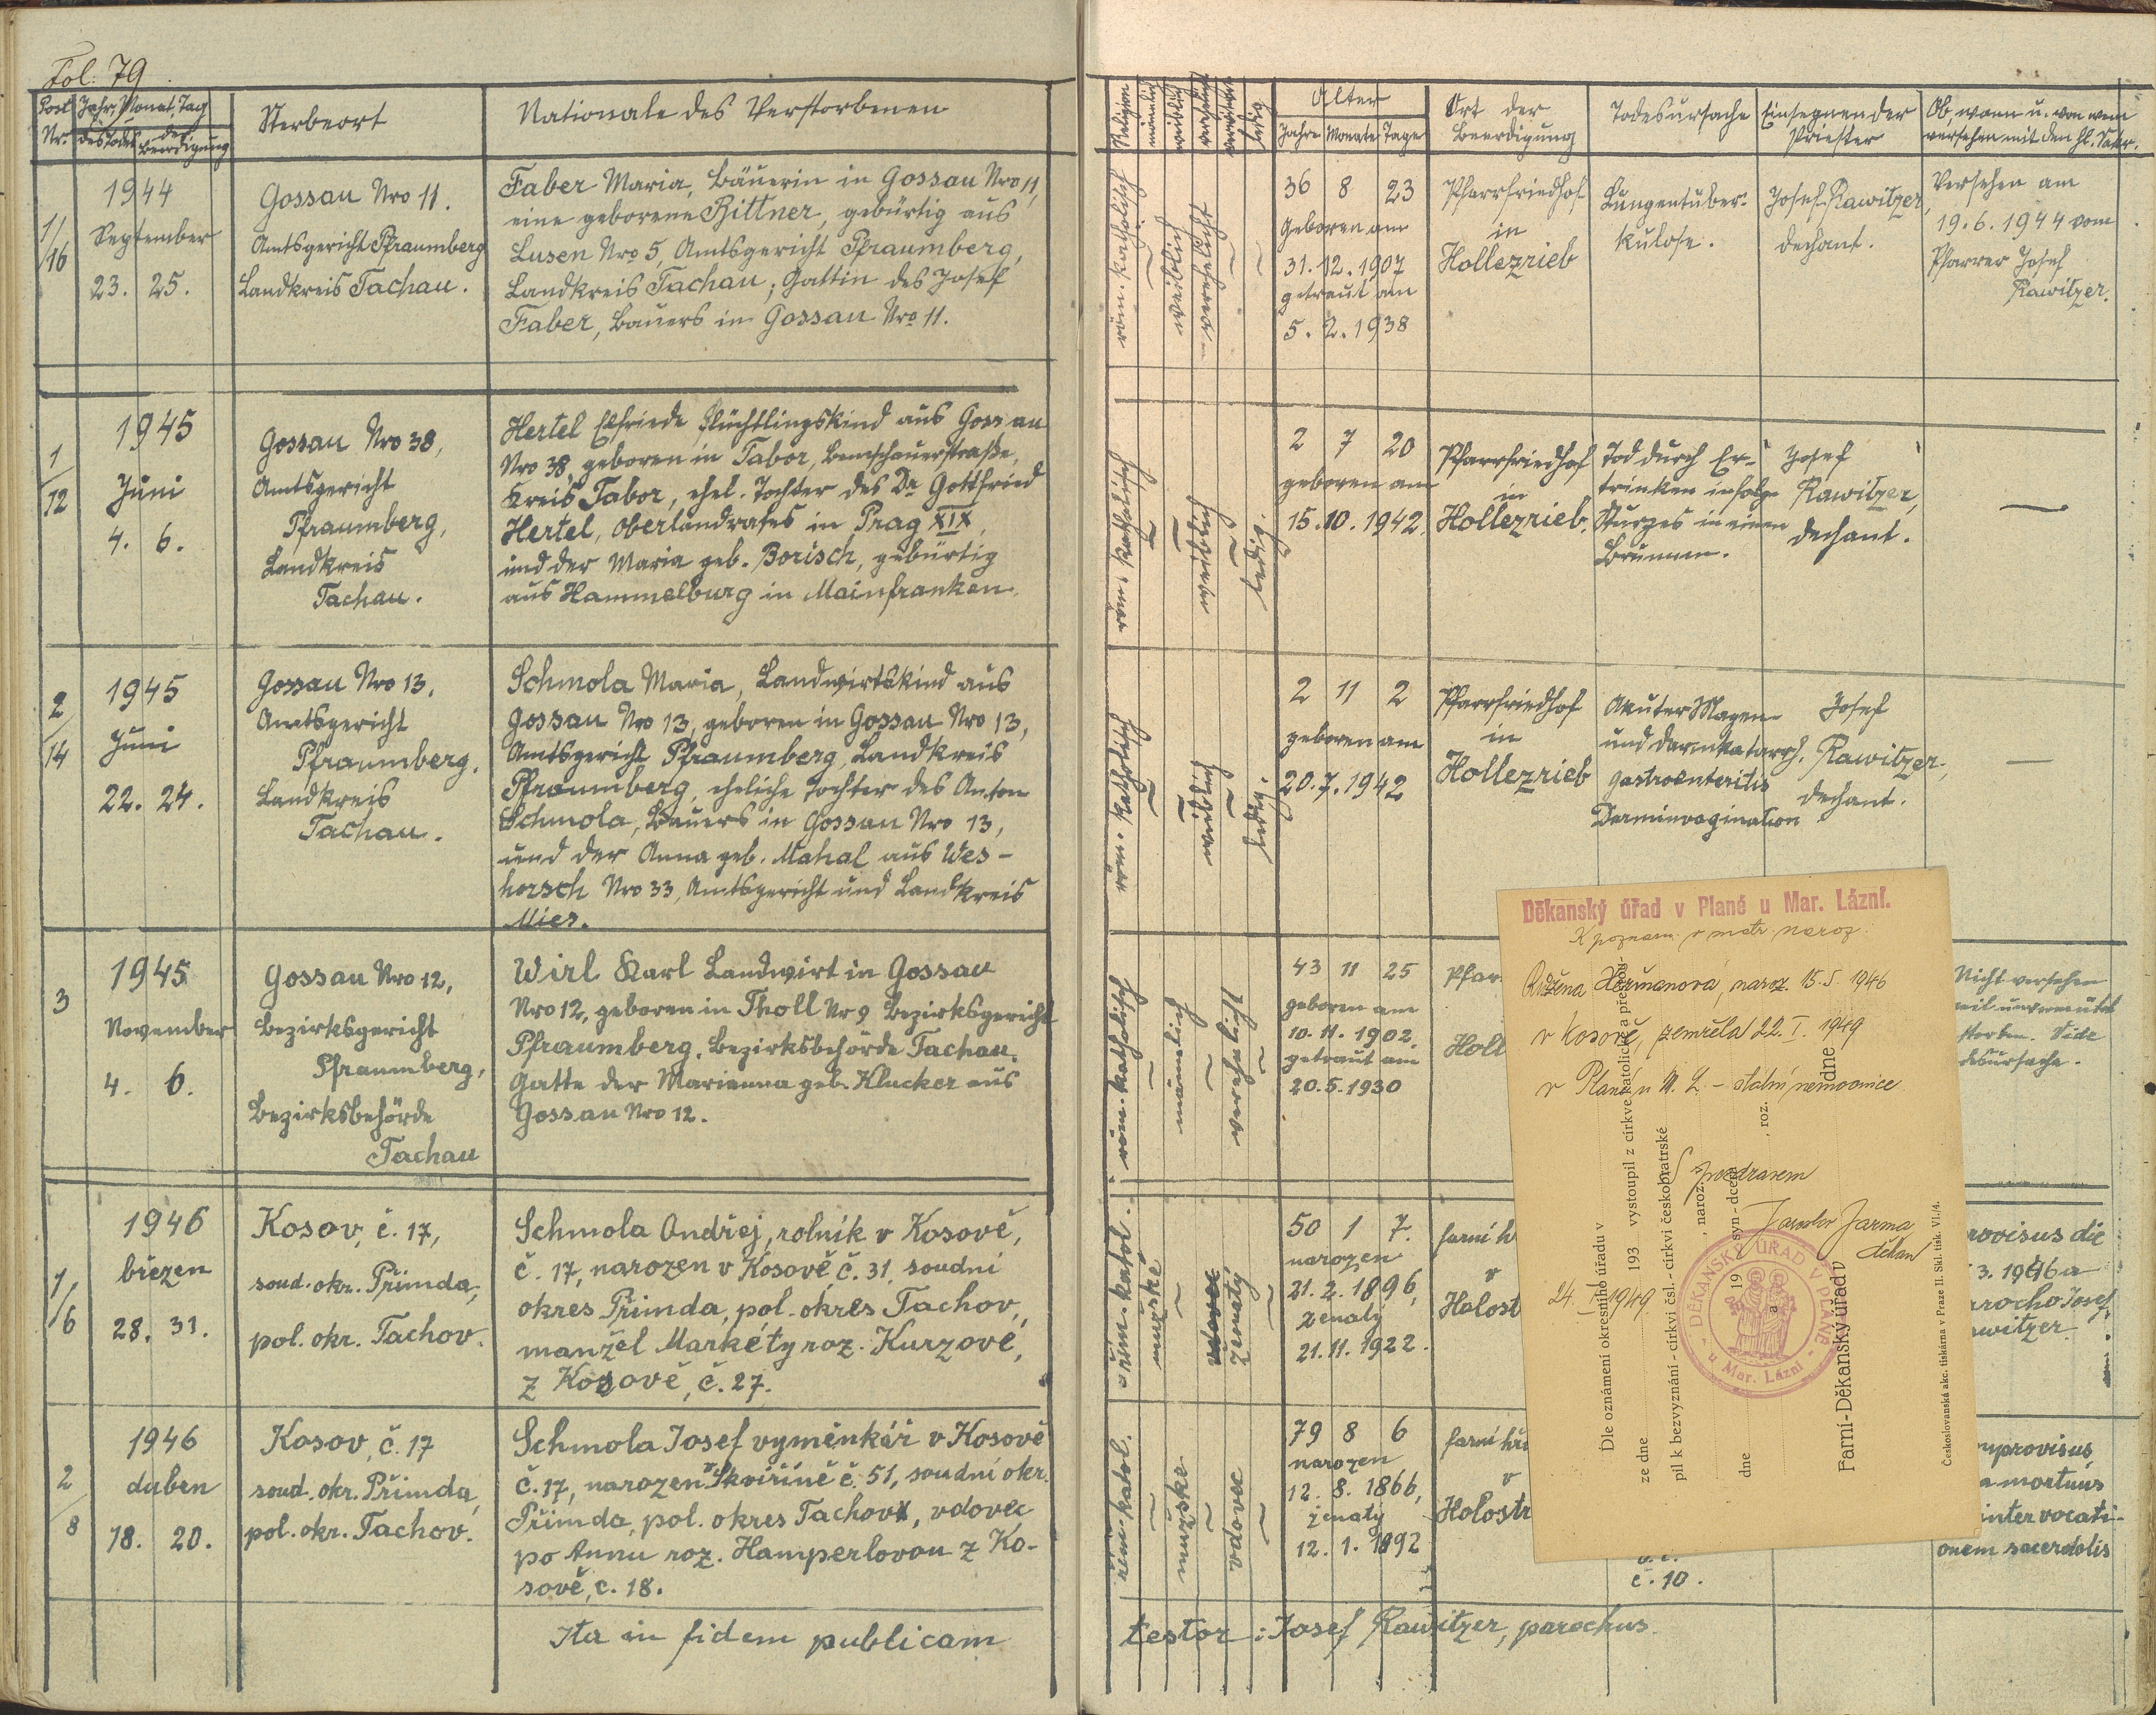 Fol: 79
Post Nr.
Jahr, Monat, Tag
des Todes
der Beerdigung
Sterbeort
Nationale des Verstorbenen
1/16
1944
September
23. 25.
Gossau Nro 11.
Amtsgericht Pfraumberg
Landkreis Tachau.
Faber Maria, Bäuerin in Gossau Nro 11,
eine geborene Bittner, gebürtig aus
Lusen Nro 5, Amtsgericht Pfraumberg,
Landkreis Tachau; Gattin des Josef
Faber, Bauers in Gossau Nro 11.
1/12
1945
Juni
4. 6.
Gossau Nro 38,
Amtsgericht
Pfraumberg,
Landkreis
Tachau.
Hertel Elfriede Flüchtlingskind aus Gossau
Nro 38, geboren in Tabor,
Kreis Tabor, ehel. Tochter des Dr Gottfried
Hertel, Oberlandrates in Prag XIX,
und der Maria geb. Borisch, gebürtig
aus Hammelburg in Mainfranken.
2/14
1945
Juni
22. 24.
Gossau Nro 13,
Amtsgericht
Pfraumberg,
Landkreis
Tachau.
Schmola Maria, Landwirtskind aus
Gossau Nro 13, geboren in Gossau Nro 13,
Amtsgericht Pfraumberg, Landkreis
Pfraumberg, eheliche Tochter des Anton
Schmola, Bauers in Gossau Nro 13,
und der Anna geb. Mahal aus Wes-
horsch Nro 33, Amtsgericht und Landkreis
Mies.
3
1945
November
4. 6.
Gossau Nro 12,
Bezirksgericht
Pfraumberg,
Bezirksbehörde
Tachau
Wirl Karl Landwirt in Gossau
Nro 12, geboren in Tholl Nr 9 Bezirksgericht
Pfraumberg, Bezirksbehörde Tachau.
Gatte der Marianna geb. Klucker aus
Gossau Nro 12.
1/6
1946
březen
28. 31.
Kosov, č. 17,
soud. okr. Přimda,
pol. okr. Tachov.
Schmola Ondřej, rolník v Kosově,
č. 17, narozen v Kosově, č. 31, soudní
okres Přimda, pol. okres Tachov,
manžel Markéty roz. Kurzové,
z Kosově, č. 27.
2/8
1946
duben
18. 20.
Kosov, č. 17
soud. okr. Přimda,
pol. okr. Tachov.
Schmola Josef výměnkář v Kosově
č. 17, narozen v Skviříně č. 51, soudní okr.
Přimda, pol. okres Tachov, vdovec
po Annu roz. Hamperlovou z Ko-
sově, č. 18.
Ita in fidem publicam
Religion
männlich
weiblich
verehelicht
verwitwet
ledig
Alter
Jahre Monate Tage
Ort der
Beerdigung
Todesursache
Einsegnender
Priester
Ob, wann u. von wem
versehen mit den hl. Sakr.
röm. katholisch
weiblich
verehelicht
36 8 23
Geboren am
31.12.1907
getraut am
5.2.1938
Pfarrfriedhof
in
Hollezrieb
Lungentuber-
kulose.
Josef Rawitzer,
Dechant.
Versehen am
19.6.1944 vom
Pfarrer Josef
Rawitzer.
röm. katholisch
weiblich
ledig.
2 7 20
geboren am
15.10.1942.
Pfarrfriedhof
in
Hollezrieb.
Tod durch Er-
trinken infolge
Sturzes in einen
Brunnen.
Josef
Rawitzer,
Dechant.
—
röm. katholisch
weiblich
ledig.
2 11 2
geboren am
20.7.1942
Pfarrfriedhof
in
Hollezrieb
Akuter Magen-
und Darmkatarrh.
Gastroenteritis
Darminvagination
Josef
Rawitzer,
Dechant.
—
röm. katholisch
männlich
verehelicht
43 11 25
geboren am
10.11.1902.
getraut am
20.5.1930
Pfar
Holl
Nicht versehen
weil unvermutet
storben. Vide
desursache.
řím. katol.
mužské
vdovec
ženatý
50 1 7.
narozen
21.2.1896,
ženatý
21.11.1922.
farní h
v
Holost
rovisus die
3. 1946 a
rocho Josef
witzer
řím. katol.
mužské
vdovec
79 8 6
narozen
12.8.1866,
ženatý
12.1.1892
farní hř
v
Holostr
č. 10.
mprovisus
a mortuus
inter vocati-
onem sacerdotis
testor: Josef Rawitzer, parochus.
Děkanský úřad v Plané u Mar. Lázní.
K poznam. v matr. naroz.
Růžena Heřmanová, naroz. 15.5. 1946
v Kosově, zemřela 22. I. 1949
v Plané u M. L. – státní nemocnice
S pozdravem
Jaroslav Jarma
děkan
24. I. 1949
DĚKANSKÝ ÚŘAD V PLANÉ
u Mar. Lázní
Dle oznámení okresního úřadu v
ze dne 193 vystoupil z církve katolické a přestou-
pil k bezvyznání - církvi čsl. - církvi českobratrské
, naroz.
dne 19 syn - dcera
a , roz.
Farní-Děkanský úřad v dne
Českoslovanská akc. tiskárna v Praze II. Skl. tisk. VI./4.